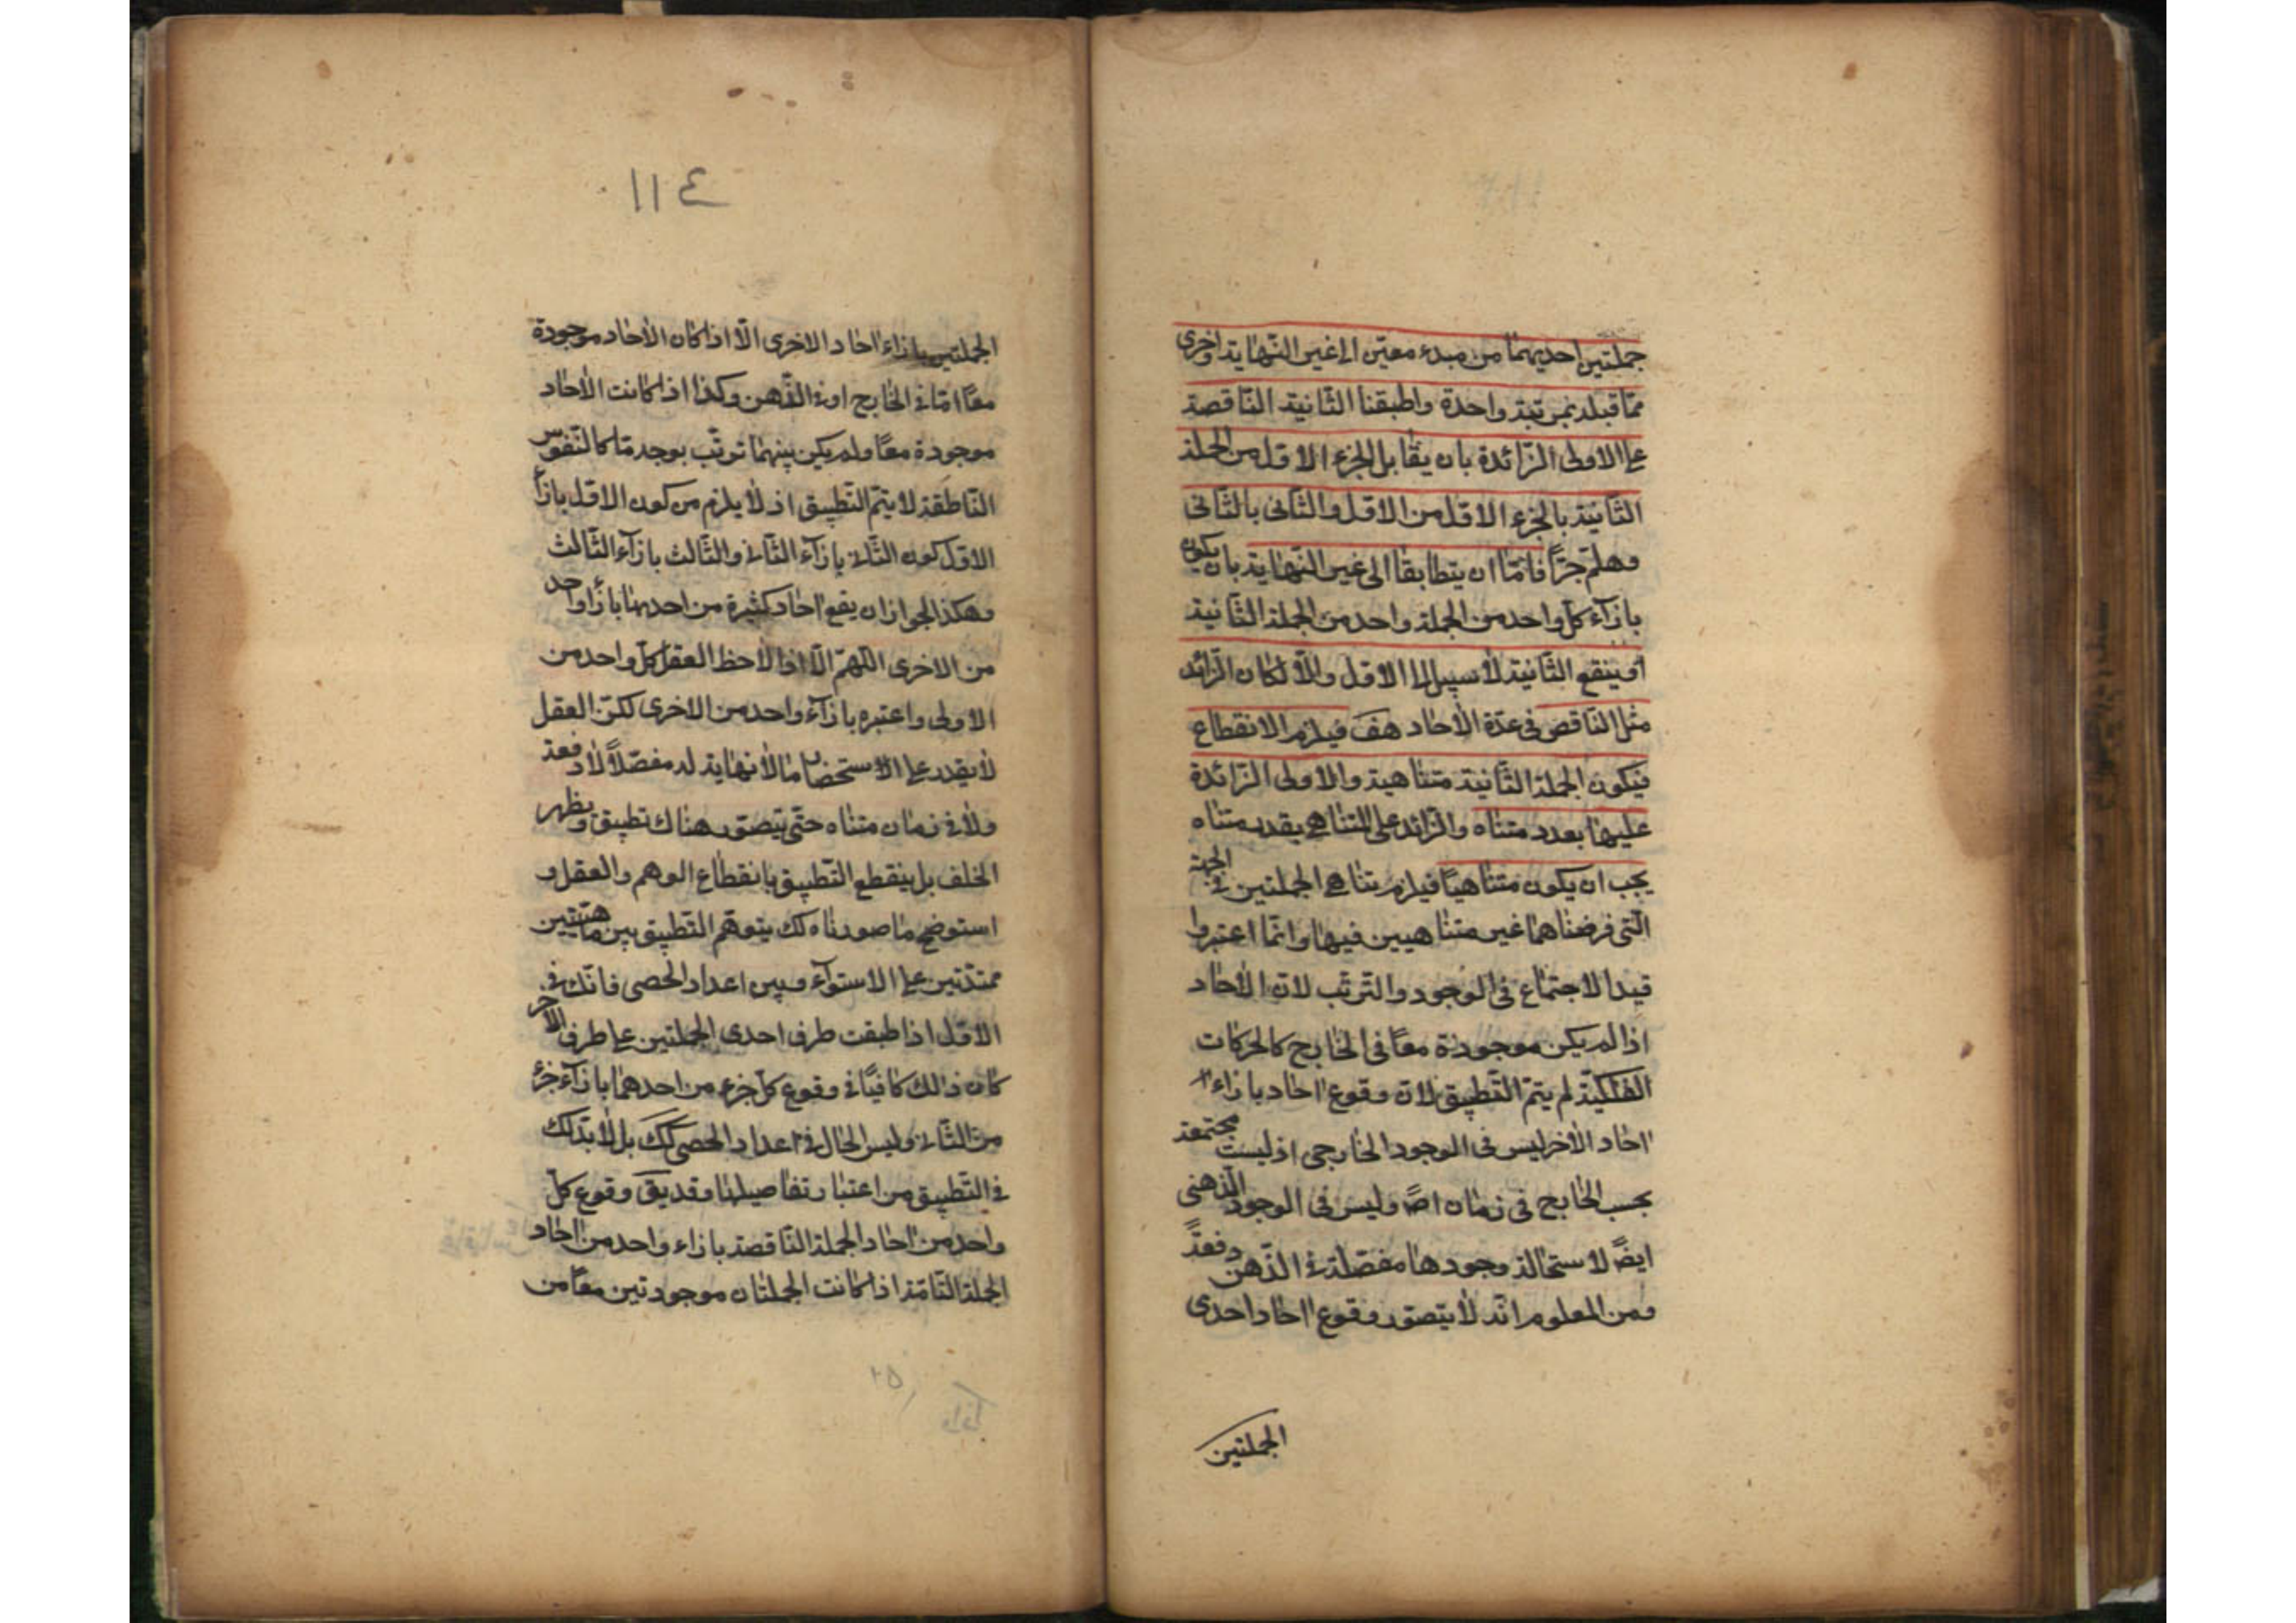 جملتين احديهما من مبدء معيّن الى غير النّهاية واخرى
ممّا قبله بمرتبة واحدة واطبقنا الثّانية النّاقصة
على الاولى الزّائدة بان يقابل الجزء الاوّل من الجملة
الثّانية بالجزء الاوّل من الاوّل والثّانى بالثّانى
وهلمّ جرّا فامّا ان يتطابقا الى غير النّهاية بان يكون
بازآء كلّ واحد من الجملة واحد من الجملة الثّانية
او ينقع الثّانية لا سبيل الى الاوّل والّا لكان الزّائد
مثل النّاقص فى عدّة الاحاد هف فيلزم الانقطاع
فيكون الجملة الثّانية متناهية والاولى الزّائدة
عليها بعدد متناه والزّائد على المتناهى بقدر متناه
يجب ان يكون متناهيًا فيلزم تناهى الجملتين فى الجهة
الّتى فرضناهما غير متناهيين فيها وانّما اعتبروا
قيد الاجتماع فى الوجود والتّرتّب لانّ الاحاد
اذا لم يكن موجودة معًا فى الخارج كالحركات
الفلكيّة لم يتمّ التّطبيق لانّ وقوع احاد بازاء
احاد الاخر ليس فى الوجود الخارجى اذ ليست مجتمعة
بحسب الخارج فى زمان اصً وليس فى الوجود الذّهنى
ايضً لاستحالة وجودها مفصّلة فى الذّهن دفعةً
ومن المعلوم انّه لا يتصوّر وقوع احاد احدى
الجملتين
١١٤
الجملتين بازاء احاد الاخرى الّا اذا كان الاحاد موجودة
معًا امّا فى الخارج او فى الذّهن وكذا اذا كانت الاحاد
موجودة معًا ولم يكن بينهما ترتّب بوجه ما كالنّفوس
النّاطقة لا يتمّ التّطبيق اذ لا يلزم من كون الاوّل بازآ
الاوّل كون الثّانى بازآء الثّانى والثّالث بازآء الثّالث
وهكذا لجواز ان يقع احاد كثيرة من احديهما بازاء واحد
من الاخرى اللّهمّ الّا اذا لاحظ العقل كلّ واحد من
الاولى واعتبره بازآء واحد من الاخرى لكنّ العقل
لا يقدر على الاستحضار ما لا نهاية له مفصّلاً لا دفعة
ولا فى زمان متناه حتّى يتصوّر هناك تطبيق ويظهر
الخلف بل ينقطع التّطبيق بانقطاع الوهم والعقل و
استوضح ما صورناه لك بتوهّم التّطبيق بين
ممتدّتين على الاستوآء وبين اعداد الحصى فانّك فى
الاوّل اذا طبقت طرف احدى الجملتين على طرف الآخر
كان ذلك كافيًا فى وقوع كلّ جزء من احدهما بازآء جزء
من الثّانى وليس الحال فى اعداد الحصى كك بل لا بدّ لك
فى التّطبيق من اعتبار تفاصيلها وقد يقَ وقوع كلّ
واحد من احاد الجملة النّاقصة بازاء واحد من احاد
الجملة التّامّة اذا كانت الجملتان موجودتين معًا من